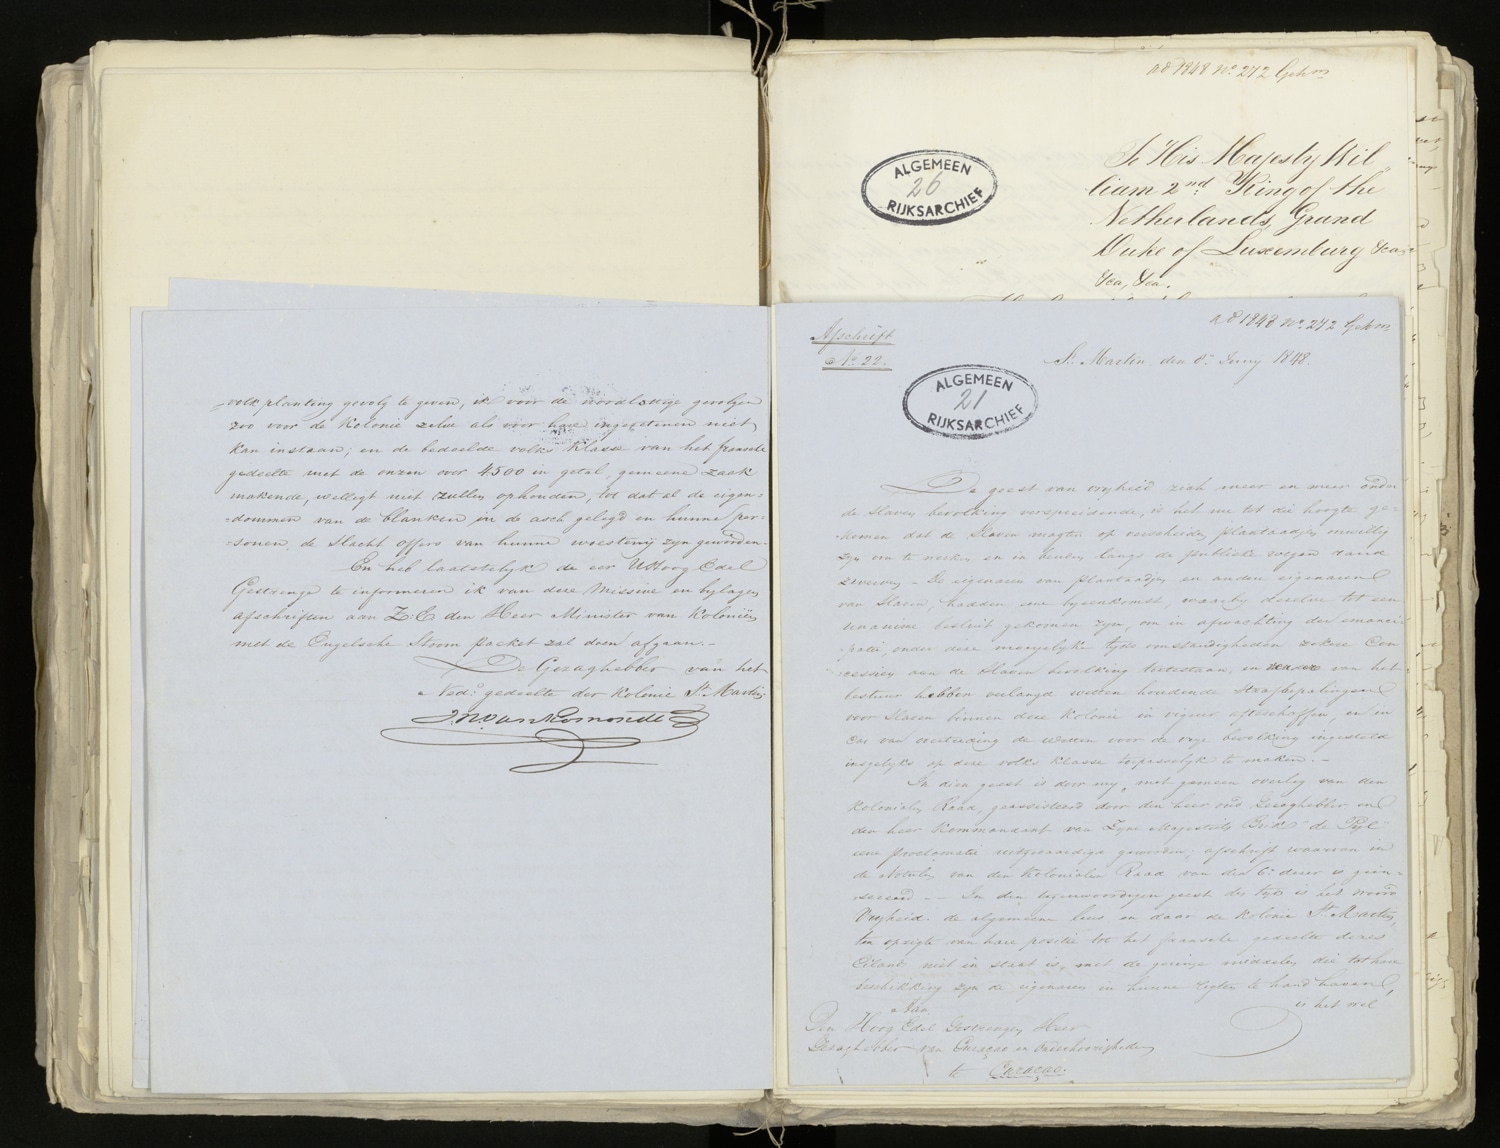 volksplanting gevolg te geven, ik voor de noodlottige gevolgen
zoo voor de Kolonie zelve als voor hare ingezetenen niet
kan instaan; en de bedoelde volks klasse van het fransche
gedeelte met de onzen over 4500 in getal, gemeene zaak
makende, welligt niet zullen ophouden, tot dat al de eigen-
-dommen van de blanken in de asch gelegd en hunne per-
-sonen, de slacht offers van hunne woestenij zijn geworden.
En heb laatstelijk de eer UHoog Edel
Gestrenge te informeren ik van deze Missive en bylagen
afschriften aan Z:E den Heer Minister van Koloniën
met de Engelsche Stoom packet zal doen afgaan.-
De Gezaghebber van het
Nedr: gedeelte der Kolonie St. Martin
A8 1848 No. 272 Gehm
ALGEMEEN
26
RIJKSARCHIEF
To His Majesty Wil
liam 2nd King of the
Netherlands, Grand
Duke of Luxemburg &ca,
&ca, &ca.
A8 1848 No. 272 Gehm
Afschrift
No. 22.
St. Martin den 8n Juny 1848.
ALGEMEEN
21
RIJKSARCHIEF
De geest van vryheid zich meer en meer onder
de Slaven bevolking verspreidende, is het nu tot die hoogte ge-
-komen dat de Slaven magten op verscheide plantaadjes onwillig
zyn om te werken en in benden langs de publieke wegen rond
zwerven - De eigenaren van plantaadjes en andere eigenaren
van Slaven, hadden eene byeenkomst, waarby dezelve tot een
unanime besluit gekomen zyn, om in afwachting der emanci-
-patie, onder deze moeijelyke tyds omstandigheden zekere Con-
-cessien aan de Slaven bevolking toetestaan, en verder van het
bestuur hebben verlangd wetten houdende Strafbepalingen
voor Slaven binnen deze Kolonie in vigeur afteschaffen, en in
Cas van overtreding de wetten voor de vrye bevolking ingesteld
insgelyks op deze volks klasse toepasselyk te maken. -
In dien geest is door my, met gemeen overleg van den
Kolonialen Raad, geassisteerd door den heer oud Gezaghebber en
den heer Kommandant van Zyne Majesteits Brik "de Pyl"
eene proclamatie uitgevaardigd geworden; afschrift waarvan in
de Notulen van den Kolonialen Raad van den 6n dezer is geïn-
-sereerd. - In den tegenwoordigen geest des tyds is het woord
Vryheid de algemeene leus, en daar de Kolonie St. Martin,
ten opzigte van hare positie tot het fransche gedeelte dezes
Eilands niet in staat is, met de geringe middelen die tot hare
beschikking zyn de eigenaren in hunne regten te hand haven,
is het wel
Aan
Den Hoog Edel Gestrengen Heer
Gezaghebber van Curaçao en onderhoorigheden
te Curaçao.